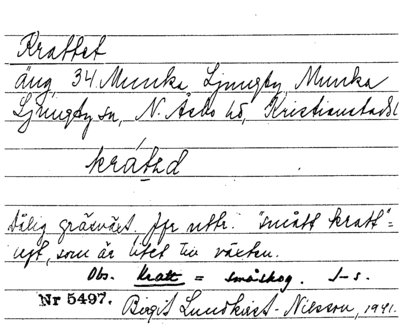 Krattet
äng, 34 Munka Ljungby, Munka
Ljungby sn, N. Åsbo hd, Kristianstads l
kràtəd
Dålig gräsväxt. Jfr uttr. "smått kratt" =
ngt, som är litet till växten.
Obs. kratt = småskog.
Nr 5497. Birgit Lundkvist-Nilsson, 1941.